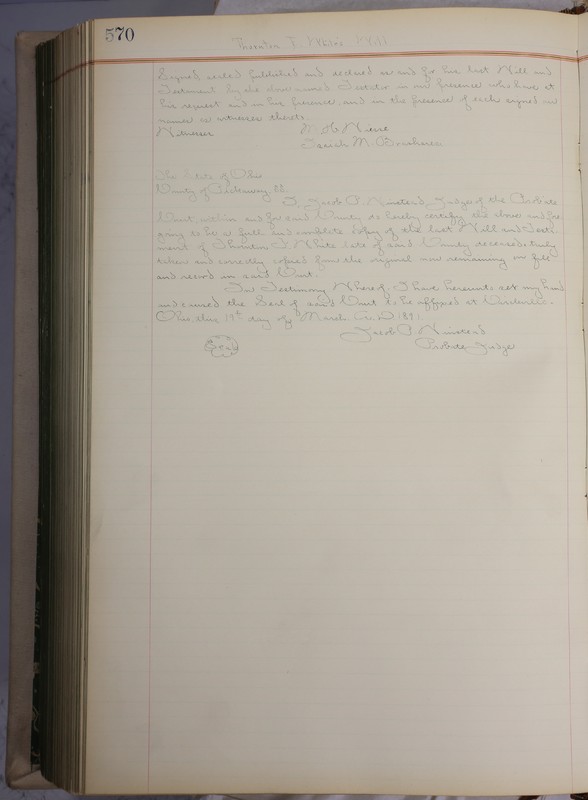 570
Thornton T. White's Will
Signed sealed published and declared as and for his last Will and
Testament by the above named Testator in our presence who have at
his request and in his presence and in the presence of each signed our
names as witnesses thereto.
Witnesses
Sarah M.
The State of Ohio
County of Pickaway, SS.
I, Jacob P. Winstead, Judge of the Probate
Court, within and for said County do hereby certify the above and fore
going to be a full and complete Copy of the last Will and Testa
ment of Thornton T. White late of said County deceased, truly
taken and correctly copied from the original now remaining on file
and record in said Court.
In Testimony Whereof, I have hereunto set my hand
and caused the Seal of said Court to be affixed at Circleville
Ohio, this 19th day of March A. D. 189
Jacob P. Winstead
Seal
Probate Judge